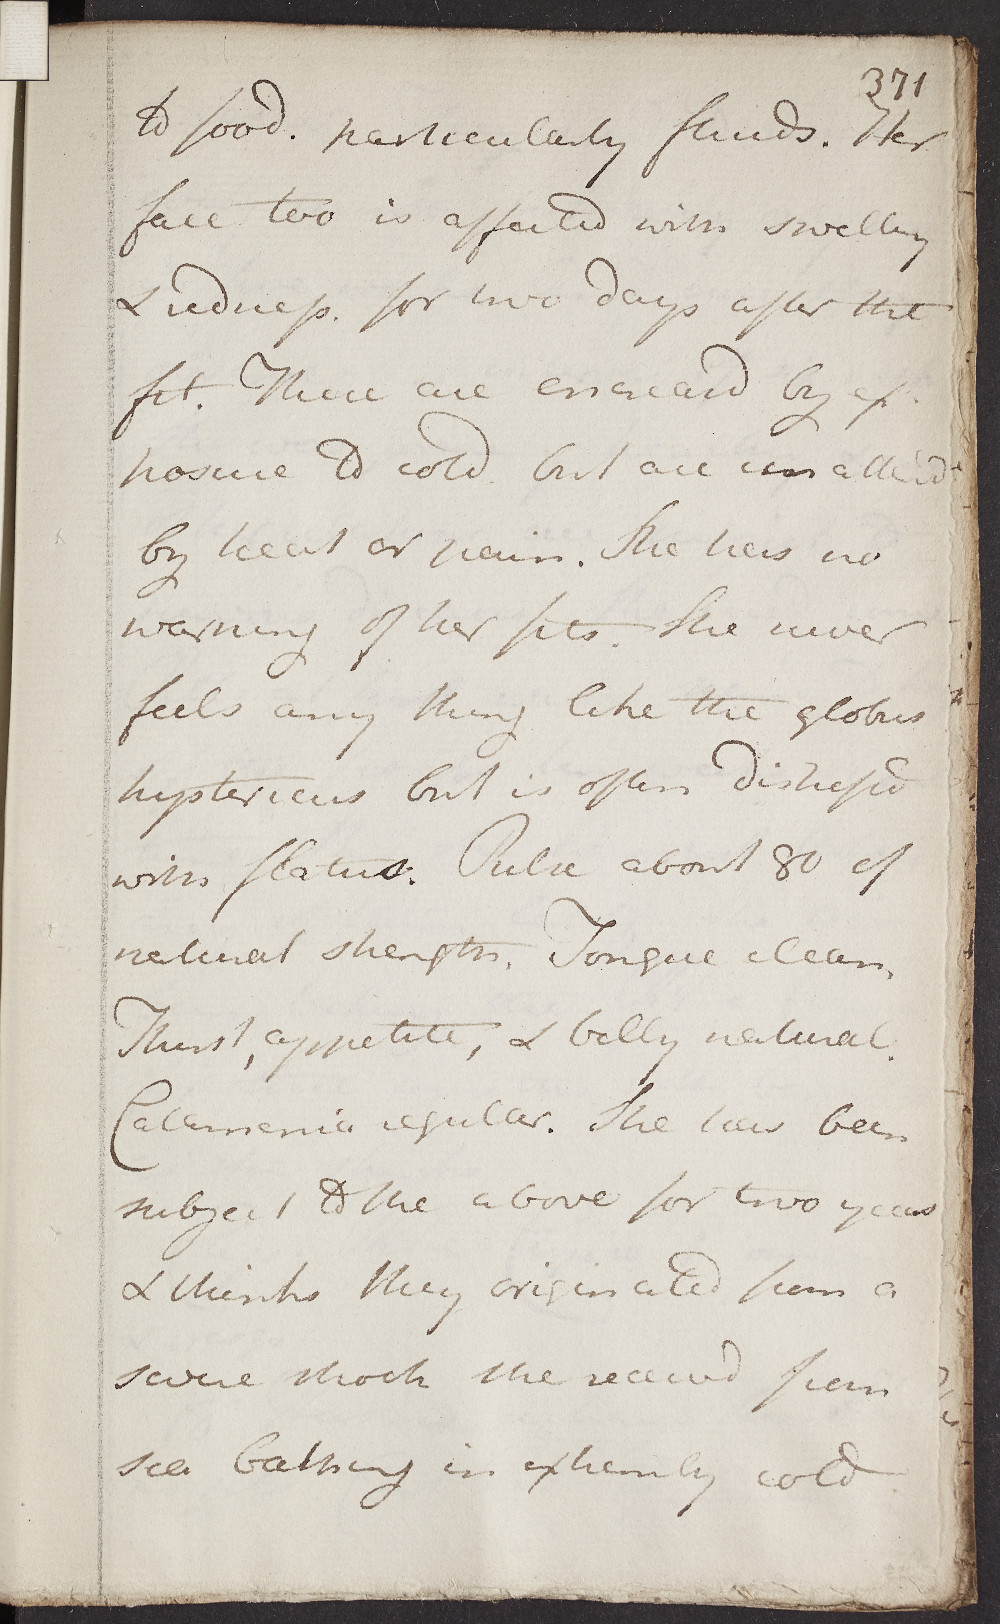 371
to food. particularly fluids. Her
face too is affected with swelling
& redness. for two days after the
fit. These are encreased by ex-
posure to cold but are unalter'd
by heat or pain. She has no
warning of her fits. She never
feels any thing like the globus
hystericus but is often distressed
with flatus. Pulse about 80 of
natural strength. Tongue clean.
Thirst, appetite, & belly natural.
Catamenia regular. She has been
subject to the above for two years
& thinks they originated from a
severe shock she received from
sea bathing in extremely cold